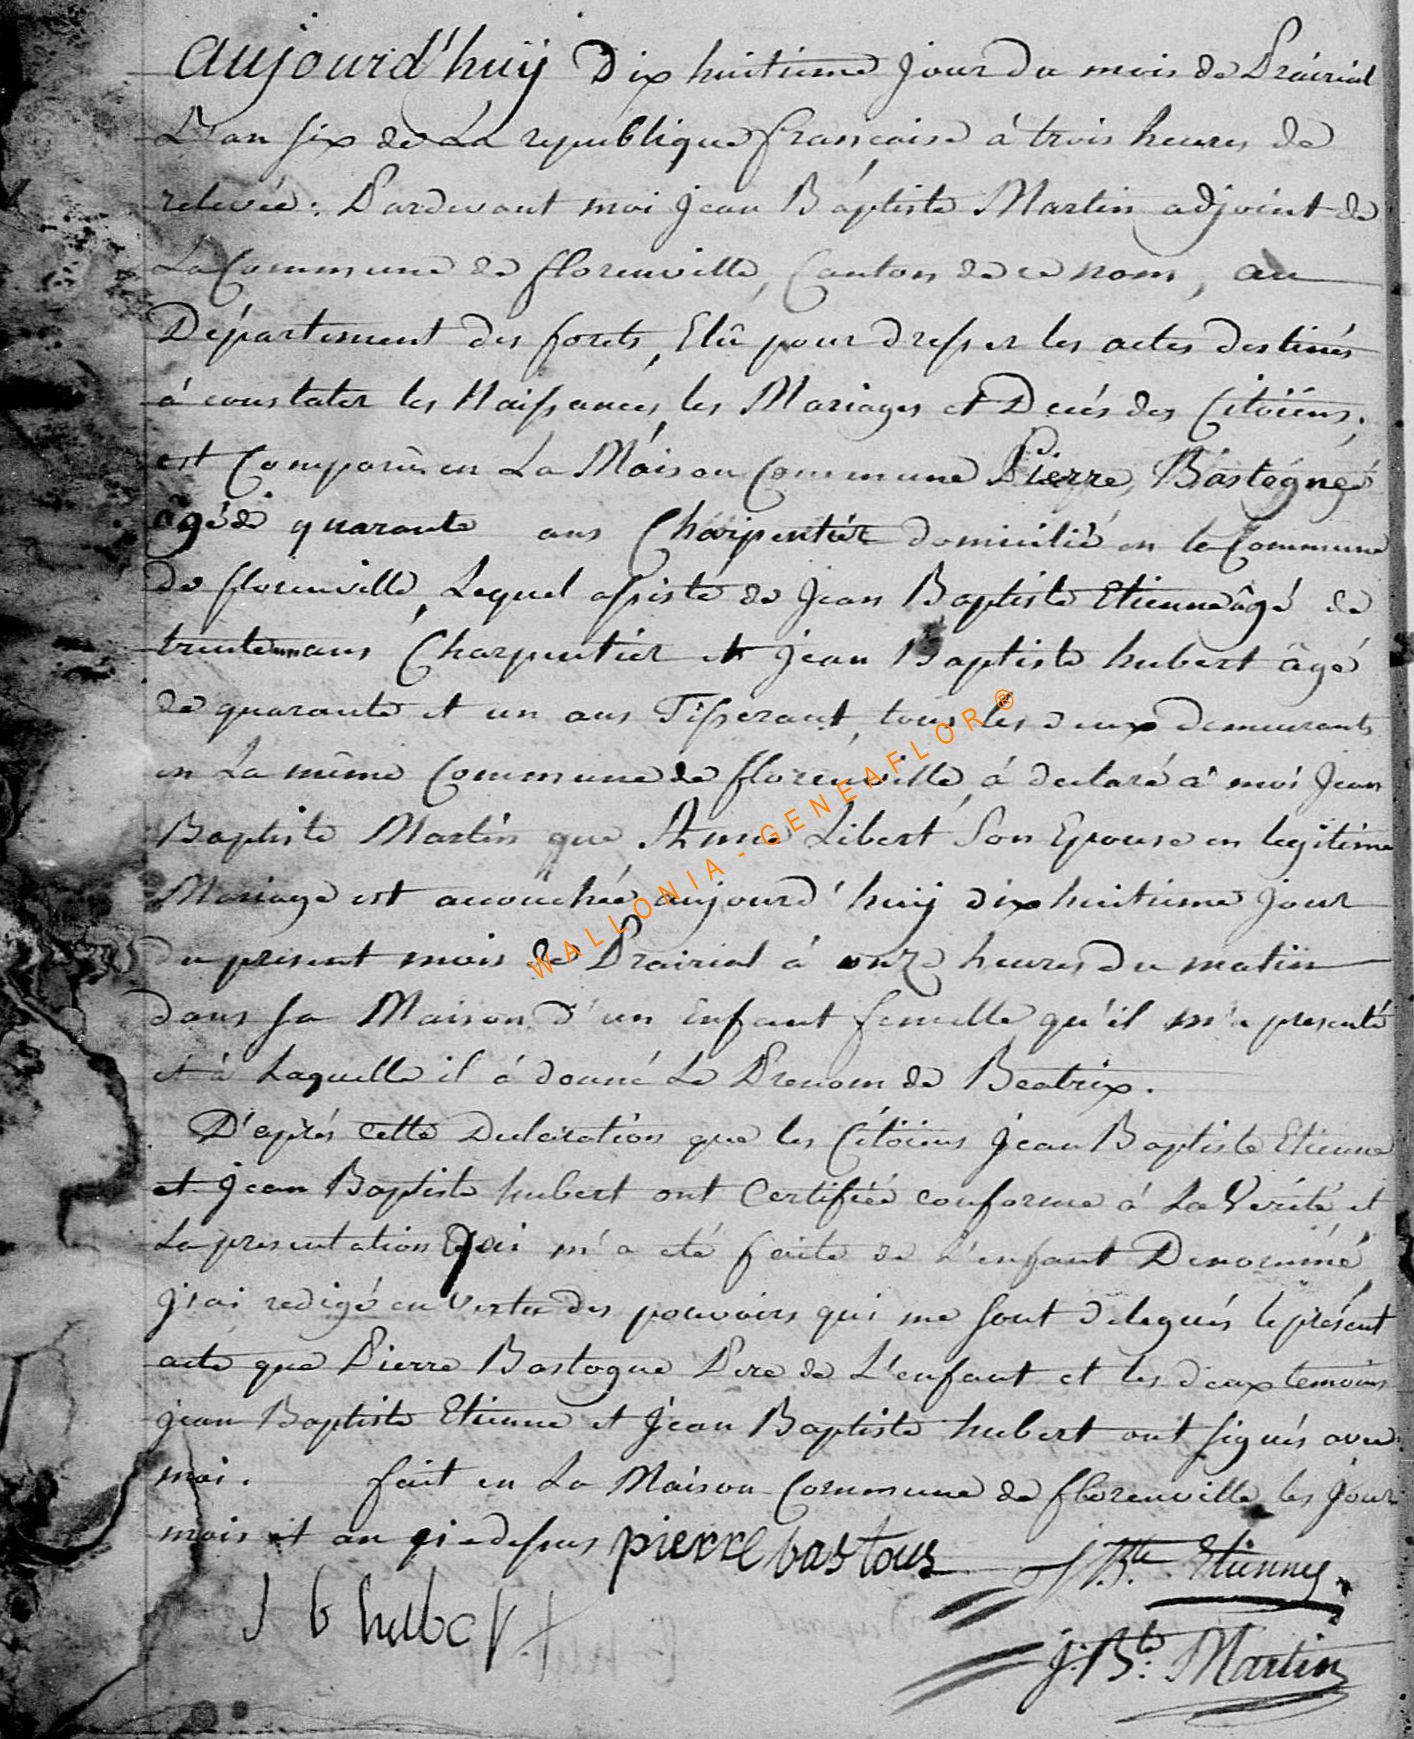 aujourd'huÿ Dix huitieme jour du mois de Prairial
L'an six de La republique française à trois heures de
relevée: Pardevant moi jean Baptiste Martin adjoint de
La Commune de florenville, Canton de ce nom, au
Département des forets, Elû pour dresser les actes destinés
à constater les Naissances, les Mariages et Decés des Citöiens,
est Comparu en La Maison Commune Pierre Bastogne
âgé de quarante ans Charpentier domicilié en la Commune
de florenville, Lequel assiste de jean Baptiste Etienne âgé de
trente un ans Charpentier et jean Baptiste hubert âgé
de quarante et un ans Tisserant, tous les deux demeurants
en La même Commune de florenville, à declaré à moi Jean
Baptiste Martin que Anne Libert Son Epouse en legitime
Mariage est accouchée aujourd'huÿ dix huitieme jour
du present mois de Prairial à onze heures du matin
dans sa Maison d'un Enfant femelle qu'il m'a presenté
et à Laquelle il à donné Le Prenom de Beatrix.
D'aprés cette Declaration que les Citöiens jean Baptiste Etienne
et jean Baptiste hubert ont Certifiée conforme à La Verité et
La presentation qui m'a eté faite de L'enfant Denommé,
j'ai redigé en Vertu des pouvoirs qui me sont delegués le présent
acte que Pierre Bastogne Pere de L'enfant et les deux temoins
jean Baptiste Etienne et jean Baptiste hubert ont signés avec
moi. fait en La Maison Commune de florenville les jour
mois et an ci dessus pierre bastoug J. Bte. Etienne
J b hubert
j: Bte: Martin
WALLONIA - GENEAFLOR ®